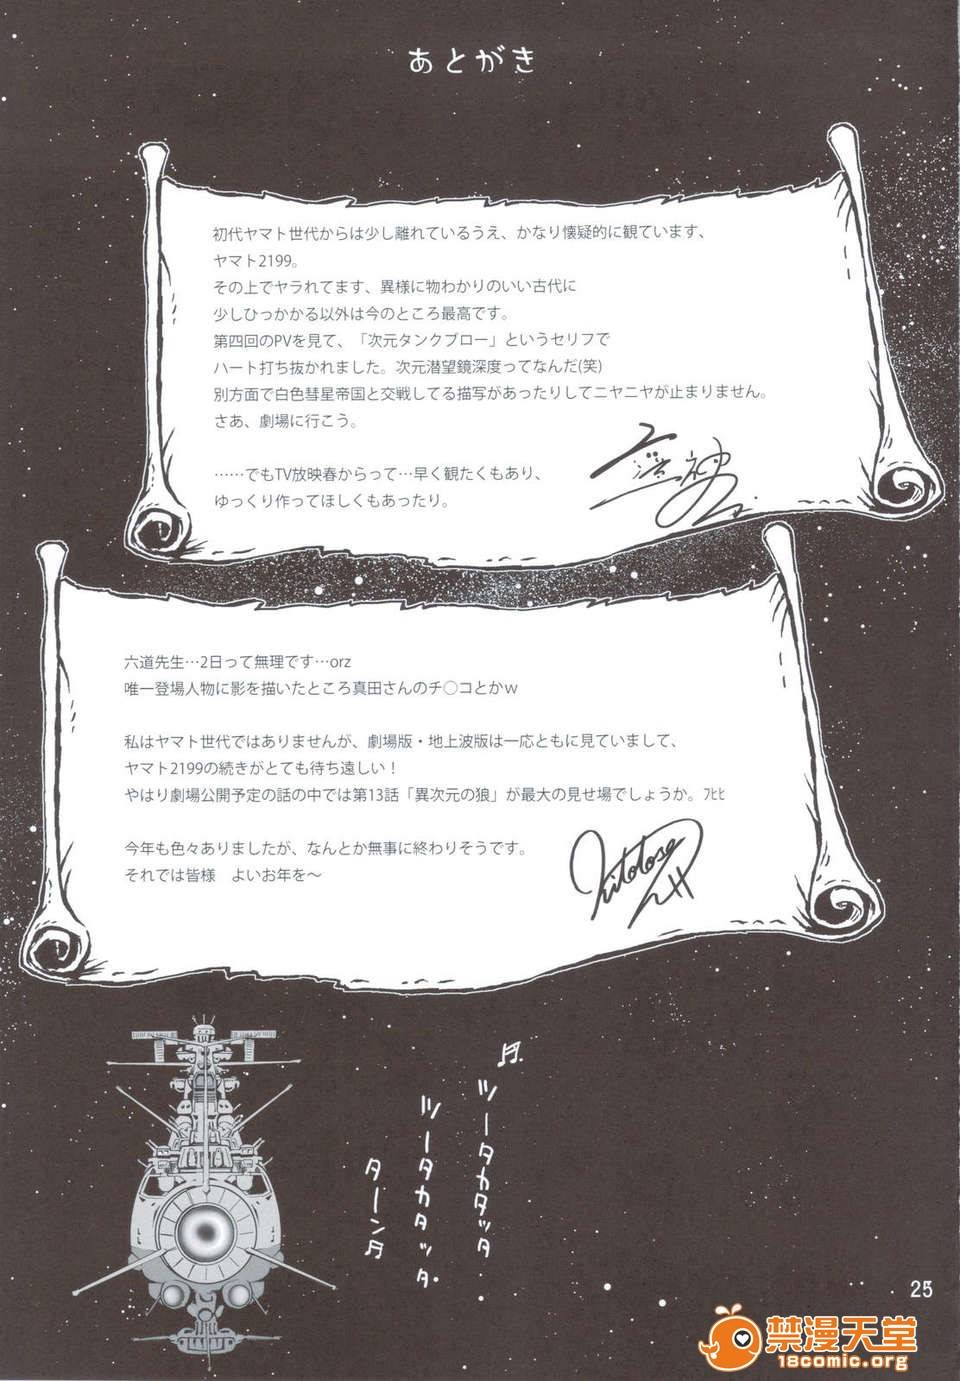 あとがき
初代ヤマト世代からは少し離れているうえ、かなり懐疑的に観ています、
ヤマト2199。
その上でヤラれてます、異様に物わかりのいい古代に
少しひっかかる以外は今のところ最高です。
第四回のPVを見て、「次元タンクブロー」というセリフで
ハート打ち抜かれました。次元潜望鏡深度ってなんだ(笑)
別方面で白色彗星帝国と交戦してる描写があったりしてニヤニヤが止まりません。
さあ、劇場に行こう。
……でもTV放映春からって…早く観たくもあり、
ゆっくり作ってほしくもあったり。
六道先生…2日って無理です…orz
唯一登場人物に影を描いたところ真田さんのチ○コとかw
私はヤマト世代ではありませんが、劇場版・地上波版は一応ともに見ていまして、
ヤマト2199の続きがとても待ち遠しい！
やはり劇場公開予定の話の中では第13話「異次元の狼」が最大の見せ場でしょうか。ﾌﾋﾋ
今年も色々ありましたが、なんとか無事に終わりそうです。
それでは皆様　よいお年を〜
♬.ツータカタッタ
ツータカタッタ.
ターン♬
25
禁漫天堂
18comic.org